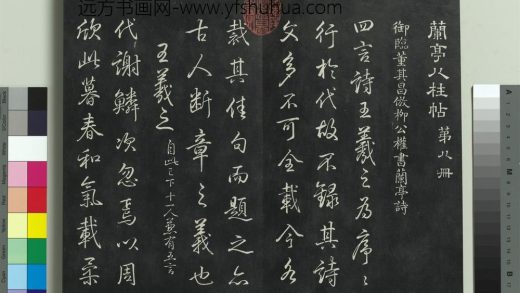 远方书画网-www.yfshuhua.com
蘭亭八柱帖 第八冊
御臨董其昌倣柳公權書蘭亭詩
四言詩王羲之為序〻
行於代故不錄其詩
文多不可全載今各
裁其佳句而題之亦
古人斷章之義也
王羲之 自此已下十一人並有五言
代謝鱗次忽焉以周
欣此暮春和氣載柔